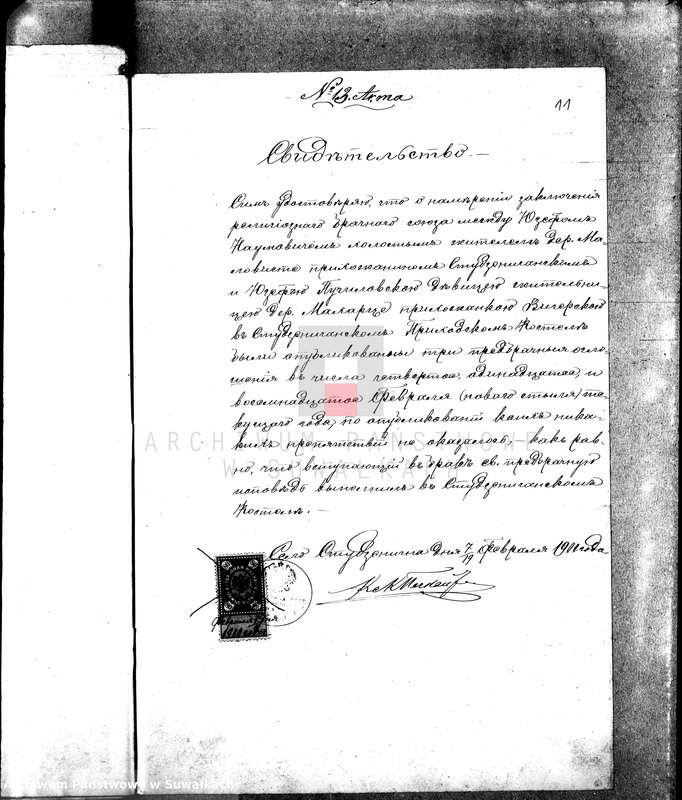 № 13. Акта
11
Свидѣтельство.—
Симъ удостовѣряю, что о намѣреніи заключенія
религіознаго брачнаго союза между Юзефомъ
Наумовичемъ холостымъ жителемъ дер. Ма-
ловисте прихожаниномъ Студзеничанскимъ
и Юзефою Пучиловскою дѣвицею жительни-
цею дер. Маларце прихожанкою Вигерскою
въ Студзеничанскомъ Приходскомъ Костелѣ
были опубликованы три предбрачныя огло-
шенія въ числа четвертое, одинадцатое, и
восемнадцатое Февраля (новаго стыля) те-
кущаго года, по опубликованіи коихъ ника-
кихъ препятствій не оказалось, какъ рав-
но, что вступающій въ бракъ св. предбрачную
исповѣдь выполнилъ въ Студзеничанскомъ
Костелѣ.—
Село Студзенична дня 7/19 Февраля 1900 года
Февраля дня
1900 года
ARCHIWUM PAŃSTWOWE
W SUWAŁKACH
Archiwum Państwowe w Suwałkach